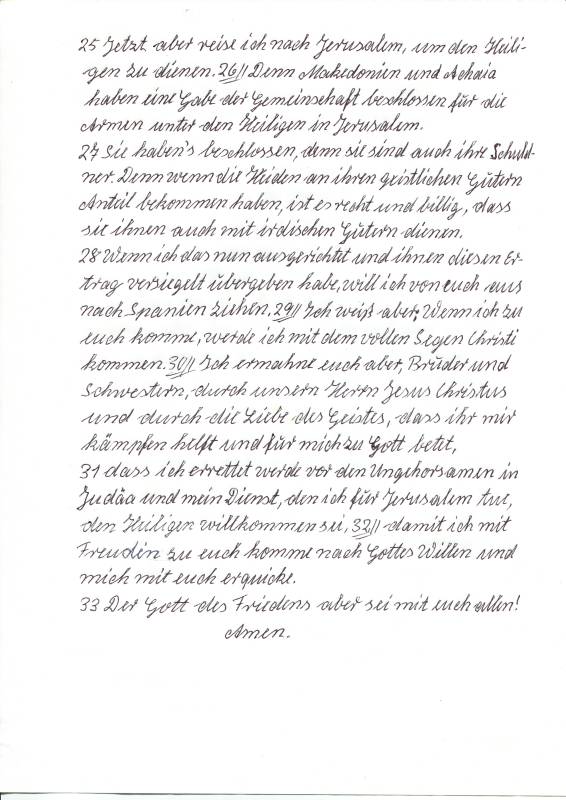 25 Jetzt aber reise ich nach Jerusalem, um den Heili-
gen zu dienen. 26// Denn Makedonien und Achaia
haben eine Gabe der Gemeinschaft beschlossen für die
Armen unter den Heiligen in Jerusalem.
27 Sie haben's beschlossen, denn sie sind auch ihre Schuld-
ner. Denn wenn die Heiden an ihren geistlichen Gütern
Anteil bekommen haben, ist es recht und billig, dass
sie ihnen auch mit irdischen Gütern dienen.
28 Wenn ich das nun ausgerichtet und ihnen diesen Er-
trag versiegelt übergeben habe, will ich von euch aus
nach Spanien ziehen. 29// Ich weiß aber: Wenn ich zu
euch komme, werde ich mit dem vollen Segen Christi
kommen. 30// Ich ermahne euch aber, Brüder und
Schwestern, durch unsern Herrn Jesus Christus
und durch die Liebe des Geistes, dass ihr mir
kämpfen helft und für mich zu Gott betet,
31 dass ich errettet werde vor den Ungehorsamen in
Judäa und mein Dienst, den ich für Jerusalem tue,
den Heiligen willkommen sei, 32// damit ich mit
Freuden zu euch komme nach Gottes Willen und
mich mit euch erquicke.
33 Der Gott des Friedens aber sei mit euch allen!
Amen.